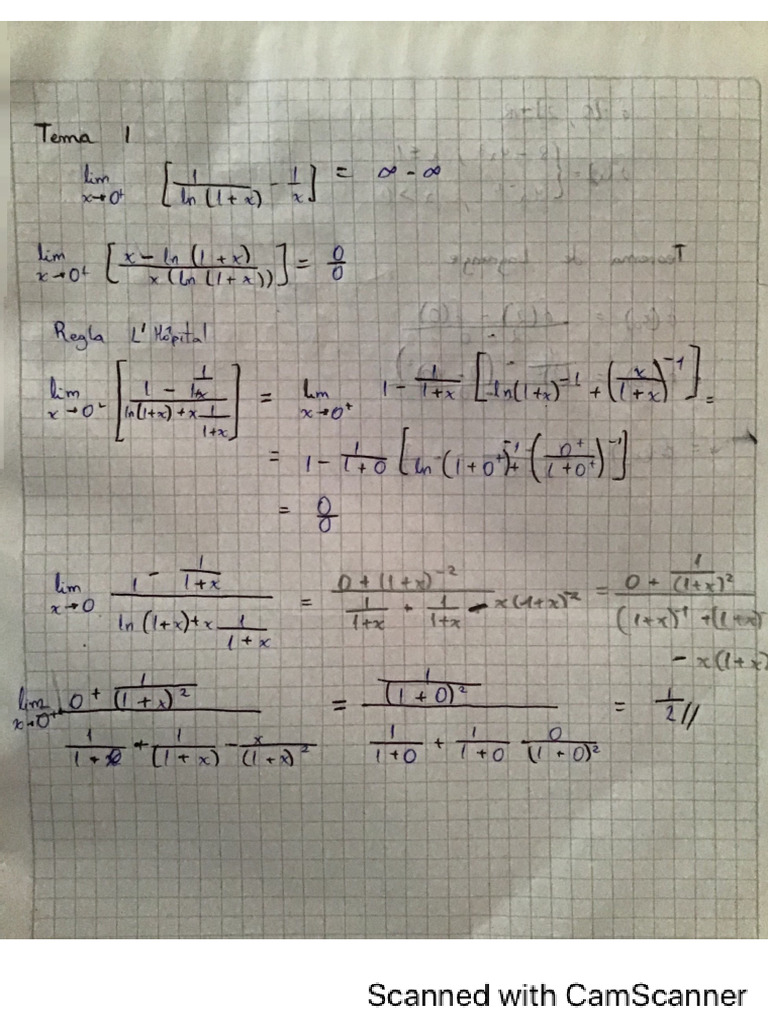 Tema 1
lim x→0⁺ [1/ln(1+x) - 1/x] = ∞ - ∞
lim x→0⁺ [x - ln(1+x) / x(ln(1+x))] = 0/0
Regla L'Hôpital
lim x→0⁺ [1 - 1/1+x / ln(1+x)+x 1/1+x] = lim x→0⁺ 1 - 1/1+x [ln(1+x)⁻¹ + (x/1+x)⁻¹] =
= 1 - 1/1+0 [ln (1+0⁺)⁻¹ + (0⁺/1+0⁺)⁻¹]
= 0/0
lim x→0 1 - 1/1+x / ln(1+x)+x 1/1+x = 0+(1+x)⁻² / 1/1+x + 1/1+x - x(1+x)⁻² = 0 + 1/(1+x)² / (1+x)⁻¹ +(1+x) - x(1+x)
lim x→0⁺ 0 + 1/(1+x)² / 1/1+x + 1/(1+x) - x/(1+x)² = 1/(1+0)² / 1/1+0 + 1/1+0 0/(1+0)² = 1/2 //
Scanned with CamScanner